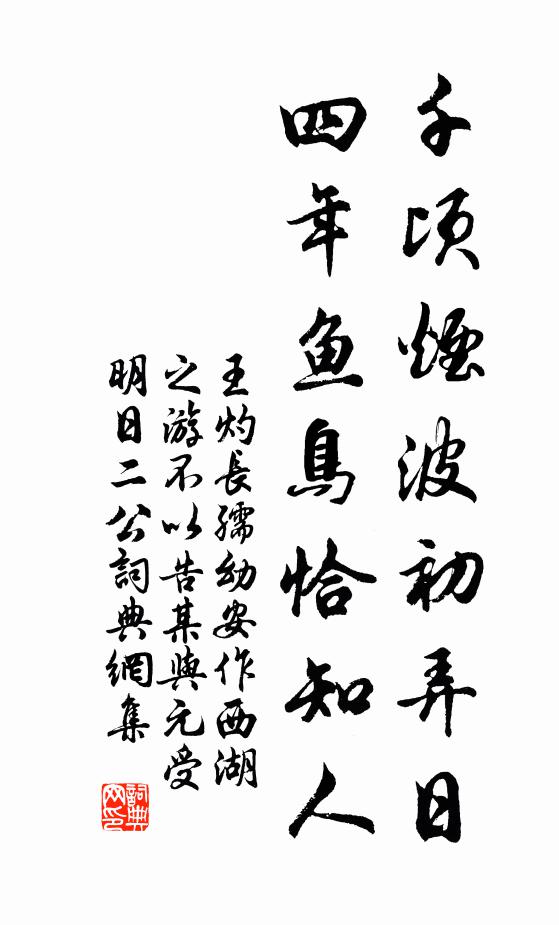 千頃煙波初弄日
四年魚鳥恰知人
王灼長孺幼安作西湖
之游不以告某與元受
明日二公詞典網集
詞典
网印